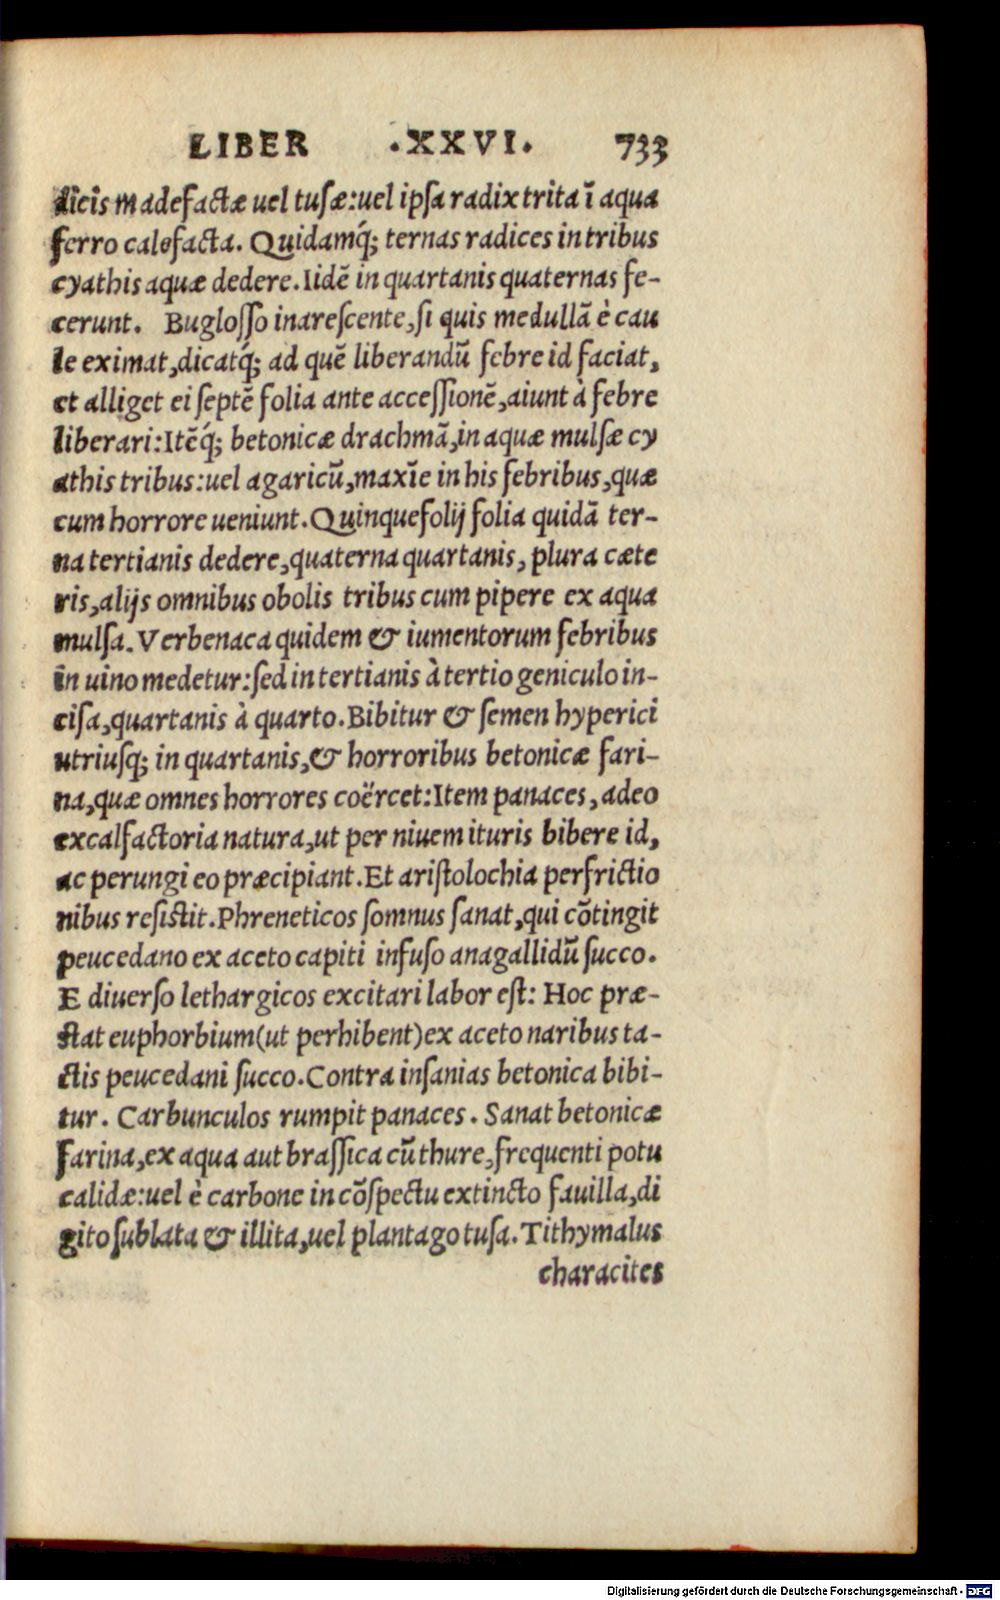 LIBER .XXVI. 733
dicis madefactæ uel tusæ:uel ipsa radix trita ī aqua
ferro calefacta. Quidamq́; ternas radices in tribus
cyathis aquæ dedere. Iidē in quartanis quaternas fe-
cerunt. Buglosso inarescente, si quis medullā è cau
le eximat, dicatq́; ad quē liberandū febre id faciat,
et alliget ei septē folia ante accessionē, aiunt à febre
liberari: Itēq́; betonicæ drachmā, in aquæ mulsæ cy
athis tribus: uel agaricū, maxīe in his febribus, quæ
cum horrore ueniunt. Quinquefolij folia quidā ter-
na tertianis dedere, quaterna quartanis, plura cæte
ris, alijs omnibus obolis tribus cum pipere ex aqua
mulsa. Verbenaca quidem & iumentorum febribus
in uino medetur: sed in tertianis à tertio geniculo in-
cisa, quartanis à quarto. Bibitur & semen hyperici
utriusq; in quartanis, & horroribus betonicæ fari-
na, quæ omnes horrores coërcet: Item panaces, adeo
excalfactoria natura, ut per niuem ituris bibere id,
ac perungi eo præcipiant. Et aristolochia perfrictio
nibus resistit. Phreneticos somnus sanat, qui cōtingit
peucedano ex aceto capiti infuso anagallidū succo.
E diuerso lethargicos excitari labor est: Hoc præ-
stat euphorbium(ut perhibent)ex aceto naribus ta-
ctis peucedani succo. Contra insanias betonica bibi-
tur. Carbunculos rumpit panaces. Sanat betonicæ
farina, ex aqua aut brassica cū thure, frequenti potu
calidæ: uel è carbone in cōspectu extincto fauilla, di
gito sublata & illita, uel plantago tusa. Tithymalus
characites
Digitalisierung gefördert durch die Deutsche Forschungsgemeinschaft - DFG